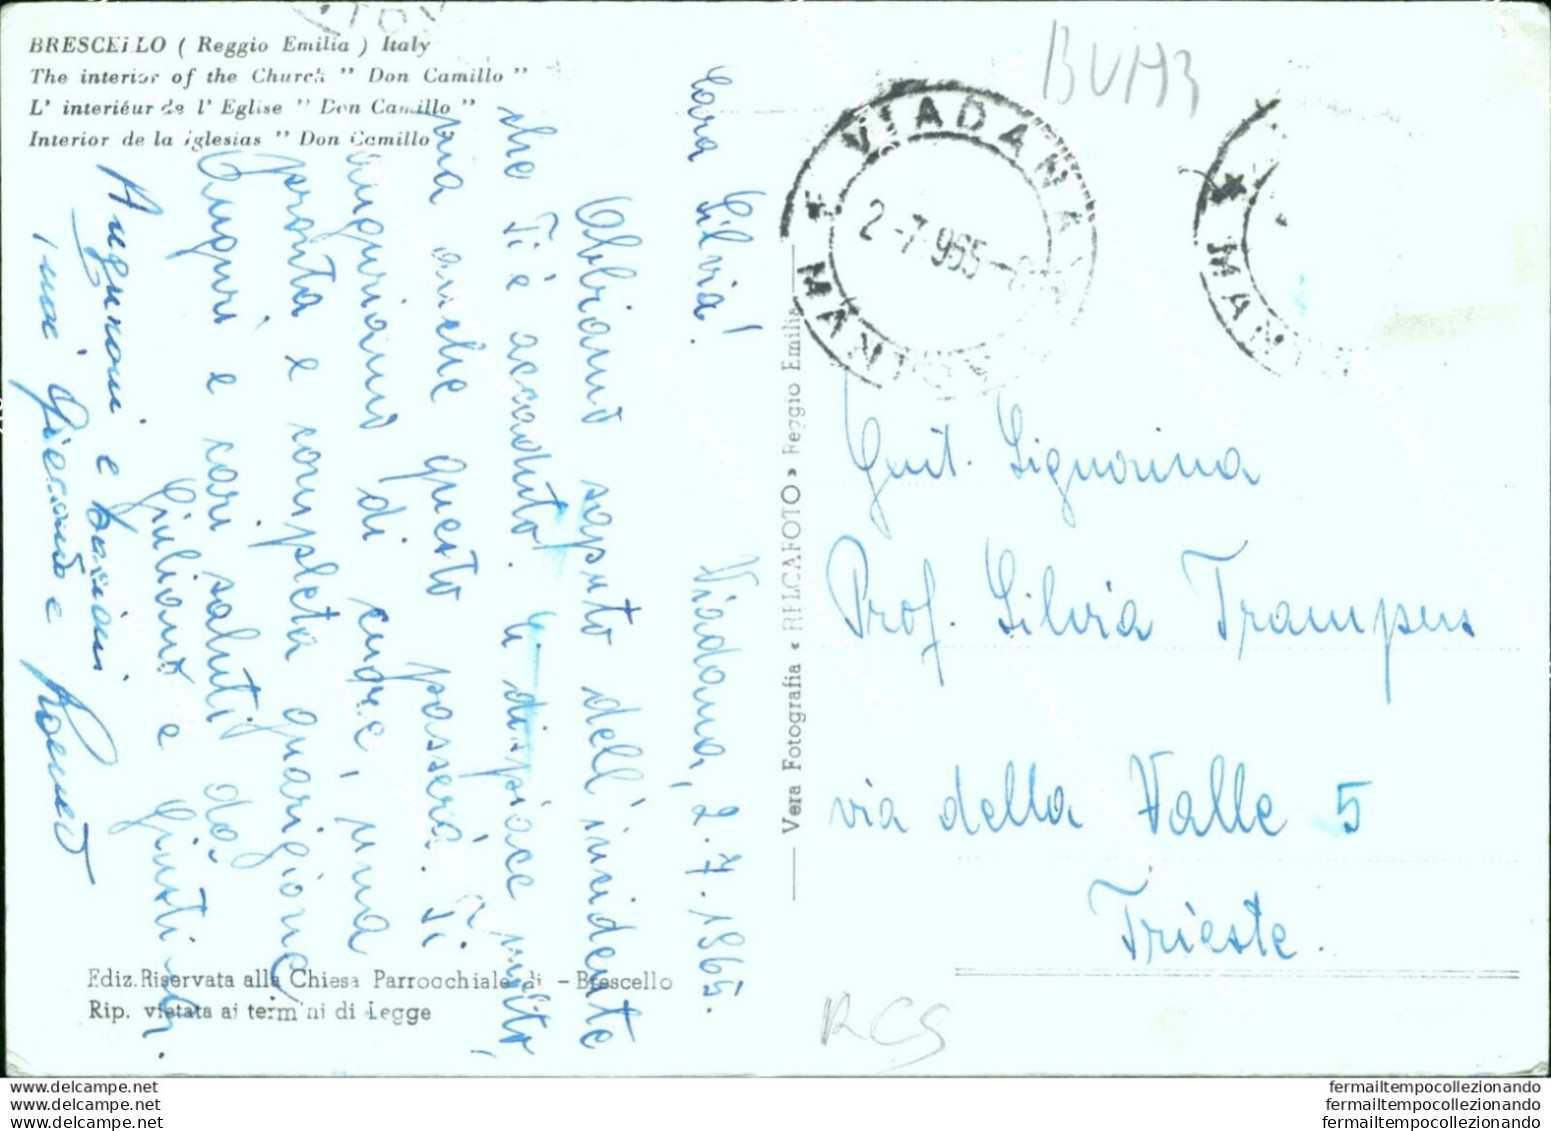 BRESCELLO ( Reggio Emilia ) Italy
The interior of the Church " Don Camillo "
L' interiéur de l' Eglise " Don Camillo "
Interior de la iglesias " Don Camillo "
Cara Silvia!
Viadana, 2.7.1965.
Abbiamo saputo dell'incidente
che Ti è accaduto. Ci dispiace molto,
ma anche questo passerà. Ti
auguriamo di cuore, una
pronta e completa guarigione
Auguri e cari saluti da
Giuliano e Giusti
Auguroni e bacioni
VIADANA
* MANTOVA *
2-7.965
* MANT
BUM3
Vera Fotografia « RELCAFOTO » Reggio Emilia
Gent. Signorina
Prof. Silvia Trampus
via della Valle 5
Trieste.
RCS
Ediz. Riservata alla Chiesa Parrocchiale di - Brescello
Rip. vietata ai termini di Legge
www.delcampe.net
www.delcampe.net
www.delcampe.net
fermailtempocollezionando
fermailtempocollezionando
fermailtempocollezionando